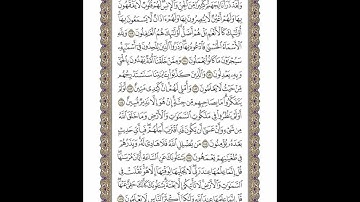 وَلَقَدْ ذَرَأْنَا لِجَهَنَّمَ كَثِيرًا مِّنَ ٱلْجِنِّ وَٱلْإِنسِ لَهُمْ قُلُوبٌ لَّا يَفْقَهُونَ
بِهَا وَلَهُمْ أَعْيُنٌ لَّا يُبْصِرُونَ بِهَا وَلَهُمْ ءَاذَانٌ لَّا يَسْمَعُونَ بِهَآ
أُو۟لَٰٓئِكَ كَٱلْأَنْعَٰمِ بَلْ هُمْ أَضَلُّ أُو۟لَٰٓئِكَ هُمُ ٱلْغَٰفِلُونَ ١٧٩ وَلِلَّهِ
ٱلْأَسْمَآءُ ٱلْحُسْنَىٰ فَٱدْعُوهُ بِهَا وَذَرُوا۟ ٱلَّذِينَ يُلْحِدُونَ فِىٓ أَسْمَٰٓئِهِۦ
سَيُجْزَوْنَ مَا كَانُوا۟ يَعْمَلُونَ ١٨٠ وَمِمَّنْ خَلَقْنَآ أُمَّةٌ يَهْدُونَ بِٱلْحَقِّ
وَبِهِۦ يَعْدِلُونَ ١٨١ وَٱلَّذِينَ كَذَّبُوا۟ بِـَٔايَٰتِنَا سَنَسْتَدْرِجُهُم
مِّنْ حَيْثُ لَا يَعْلَمُونَ ١٨٢ وَأُمْلِى لَهُمْ إِنَّ كَيْدِى مَتِينٌ ١٨٣ أَوَلَمْ
يَتَفَكَّرُوا۟ مَا بِصَاحِبِهِم مِّن جِنَّةٍ إِنْ هُوَ إِلَّا نَذِيرٌ مُّبِينٌ ١٨٤
أَوَلَمْ يَنظُرُوا۟ فِى مَلَكُوتِ ٱلسَّمَٰوَٰتِ وَٱلْأَرْضِ وَمَا خَلَقَ ٱللَّهُ
مِن شَىْءٍ وَأَنْ عَسَىٰٓ أَن يَكُونَ قَدِ ٱقْتَرَبَ أَجَلُهُمْ فَبِأَىِّ حَدِيثٍۭ
بَعْدَهُۥ يُؤْمِنُونَ ١٨٥ مَن يُضْلِلِ ٱللَّهُ فَلَا هَادِىَ لَهُۥ وَيَذَرُهُمْ
فِى طُغْيَٰنِهِمْ يَعْمَهُونَ ١٨٦ يَسْـَٔلُونَكَ عَنِ ٱلسَّاعَةِ أَيَّانَ مُرْسَىٰهَا
قُلْ إِنَّمَا عِلْمُهَا عِندَ رَبِّى لَا يُجَلِّيهَا لِوَقْتِهَآ إِلَّا هُوَ ثَقُلَتْ فِى
ٱلسَّمَٰوَٰتِ وَٱلْأَرْضِ لَا تَأْتِيكُمْ إِلَّا بَغْتَةً يَسْـَٔلُونَكَ كَأَنَّكَ حَفِىٌّ عَنْهَا
قُلْ إِنَّمَا عِلْمُهَا عِندَ ٱللَّهِ وَلَٰكِنَّ أَكْثَرَ ٱلنَّاسِ لَا يَعْلَمُونَ ١٨٧